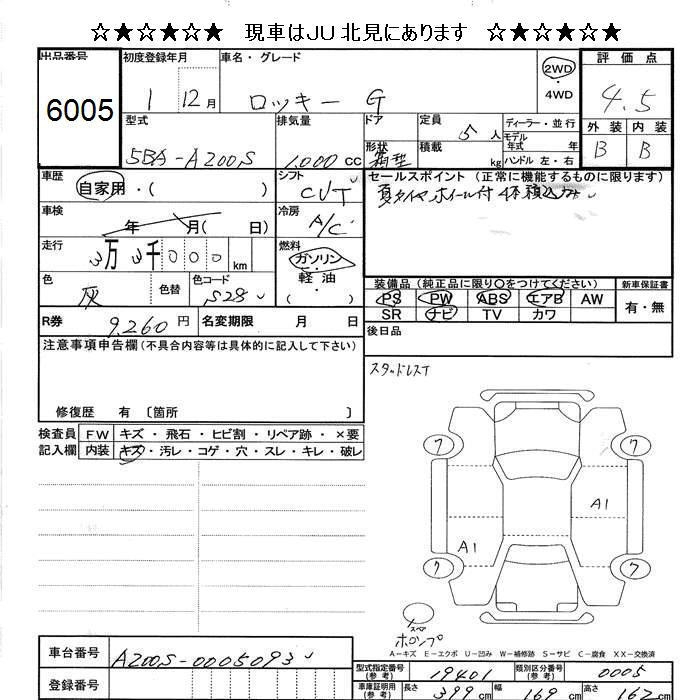 ☆★☆★☆☆ 現車はJU北見にあります ☆★☆★☆★
出品番号 初度登録年月 車名・グレード 2WD 評価点
6005 1 12月 ロッキー G ・4WD 4.5
型式 排気量 ドア 定員 5人 ディーラー・並行 外装 内装
モデル年式 年
5BA-A200S 1,000cc 形状 箱型 積載 kg ハンドル 左・右 B B
車歴 自家用・( ) シフト CVT セールスポイント (正常に機能するものに限ります)
夏タイヤ ホイール付 4本積込み
車検 年 月( 日) 冷房 A/C
走行 3万3千000km 燃料 ガソリン
軽油
・( )
色 灰 色替 色コード S28
装備品 (純正品に限り〇をつけてください) 新車保証書
PS PW ABS エアB AW 有・無
SR ナビ TV カワ
R券 9,260円 名変期限 月 日 後日品
注意事項申告欄(不具合内容等は具体的に記入して下さい)
スタッドレスT
修復歴 有 〔箇所 〕
検査員 FW キズ・飛石・ヒビ割・リペア跡・×要
記入欄 内装 キズ・汚レ・コゲ・穴・スレ・キレ・破レ
7 7
A1
A1
7 7
スペア
ホロンプ
A-キズ E-エクボ U-凹み W-補修跡 S-サビ C-腐食 XX-交換済
車台番号 A200S-0005093
型式指定番号(参考) 19401 類別区分番号(参考) 0005
登録番号 車庫証明用(参考) 長さ 399cm 幅 169cm 高さ 162cm